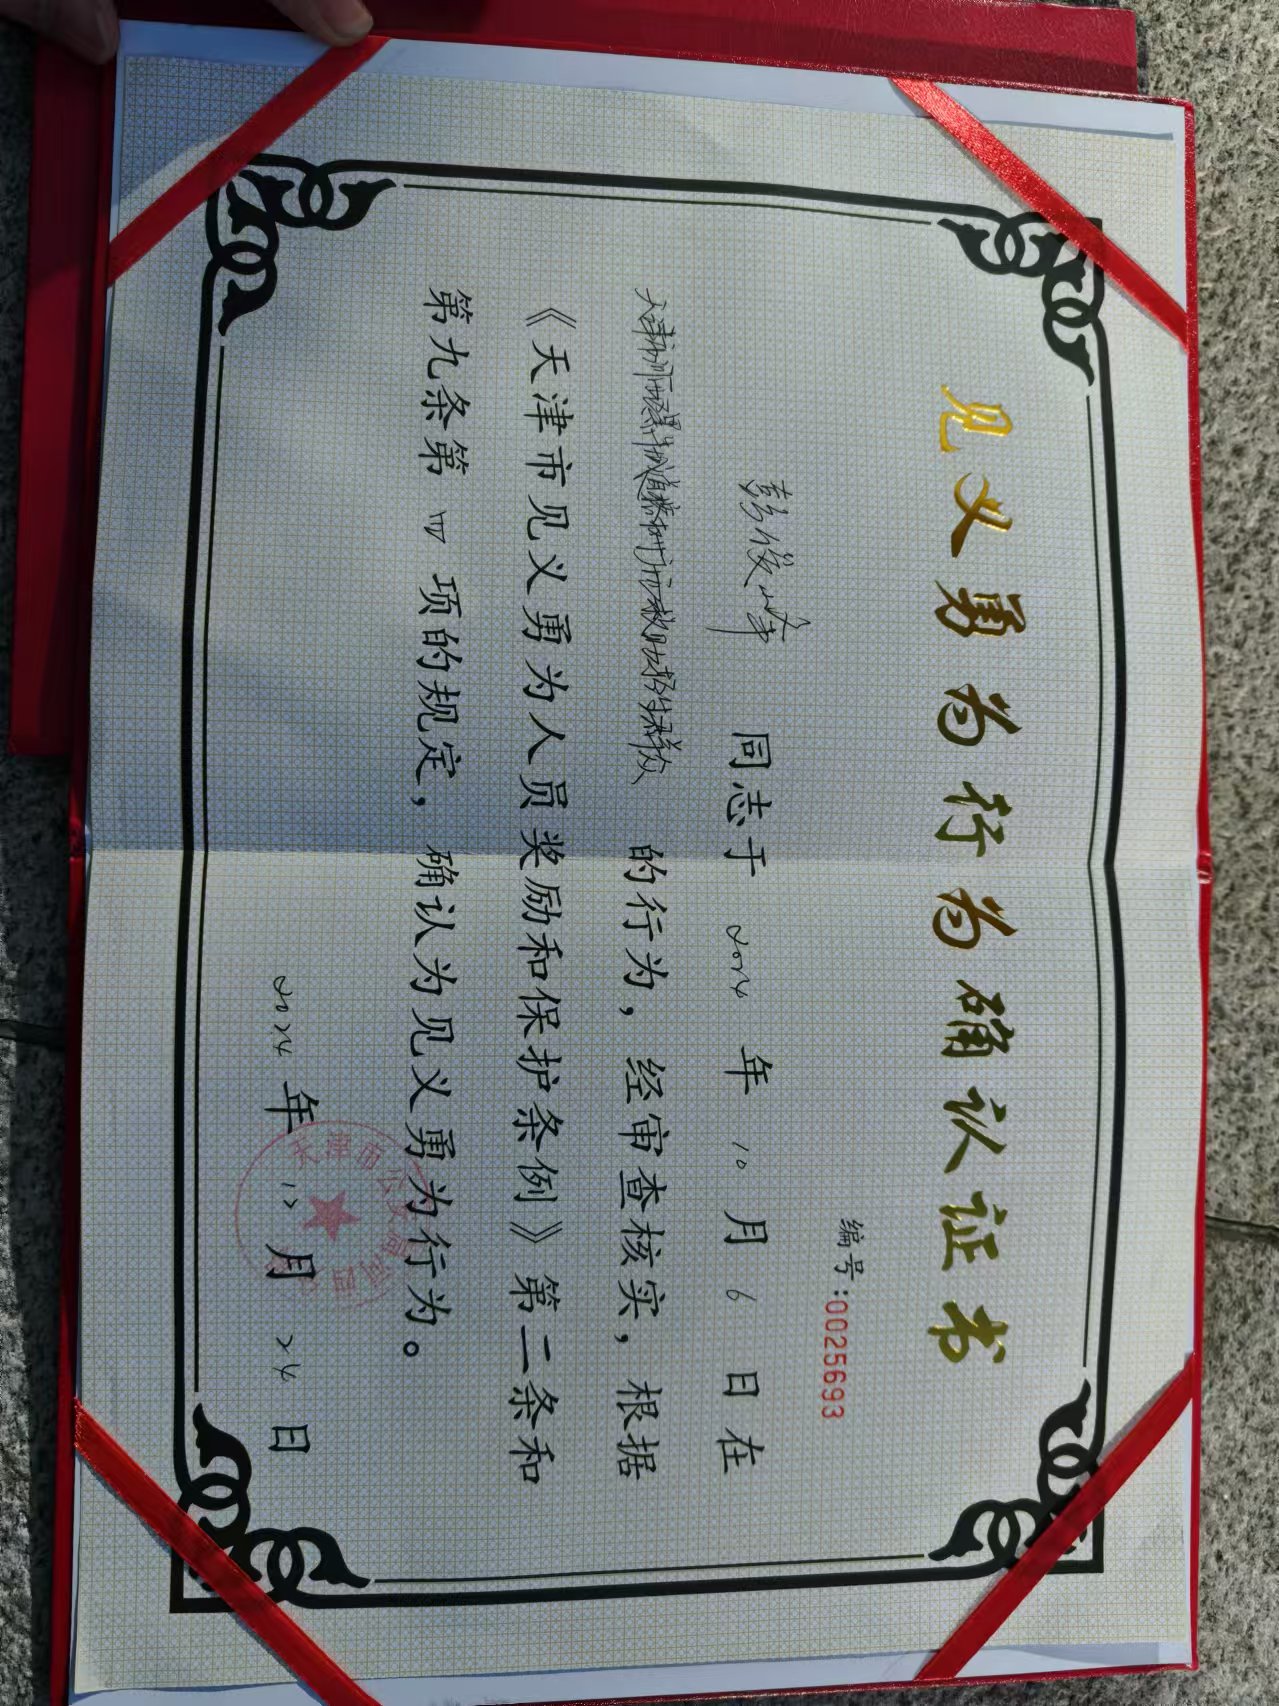 见义勇为行为确认证书
编号:0025693
彭俊峰 同志于 2024 年 10 月 6 日在
天津市河西区 的行为，经审查核实，根据
《天津市见义勇为人员奖励和保护条例》第二条和
第九条第 四 项的规定，确认为见义勇为行为。
2024 年 12 月 24 日
天津市公安局河西